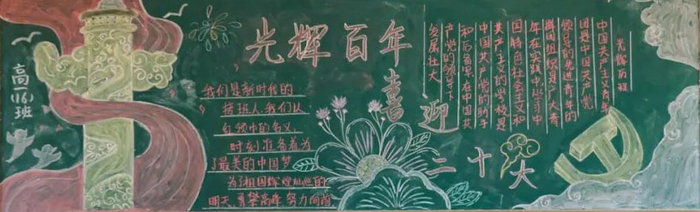 高一(16)班
光辉百年
喜迎
二十大
我们是新时代的
接班人,我们从
红领巾的名义
时刻准备着为
了最美的中国梦
为了祖国辉煌灿烂的
明天,勇攀高峰 努力向前
光辉历程
中国共产主义青年
团是中国共产党
领导的先进青年的
群团组织是广大青
年在实践中学习中
国特色社会主义和
共产主义的学校是
中国共产党的助手
和后备军,在中国共
产党的领导下
发展壮大